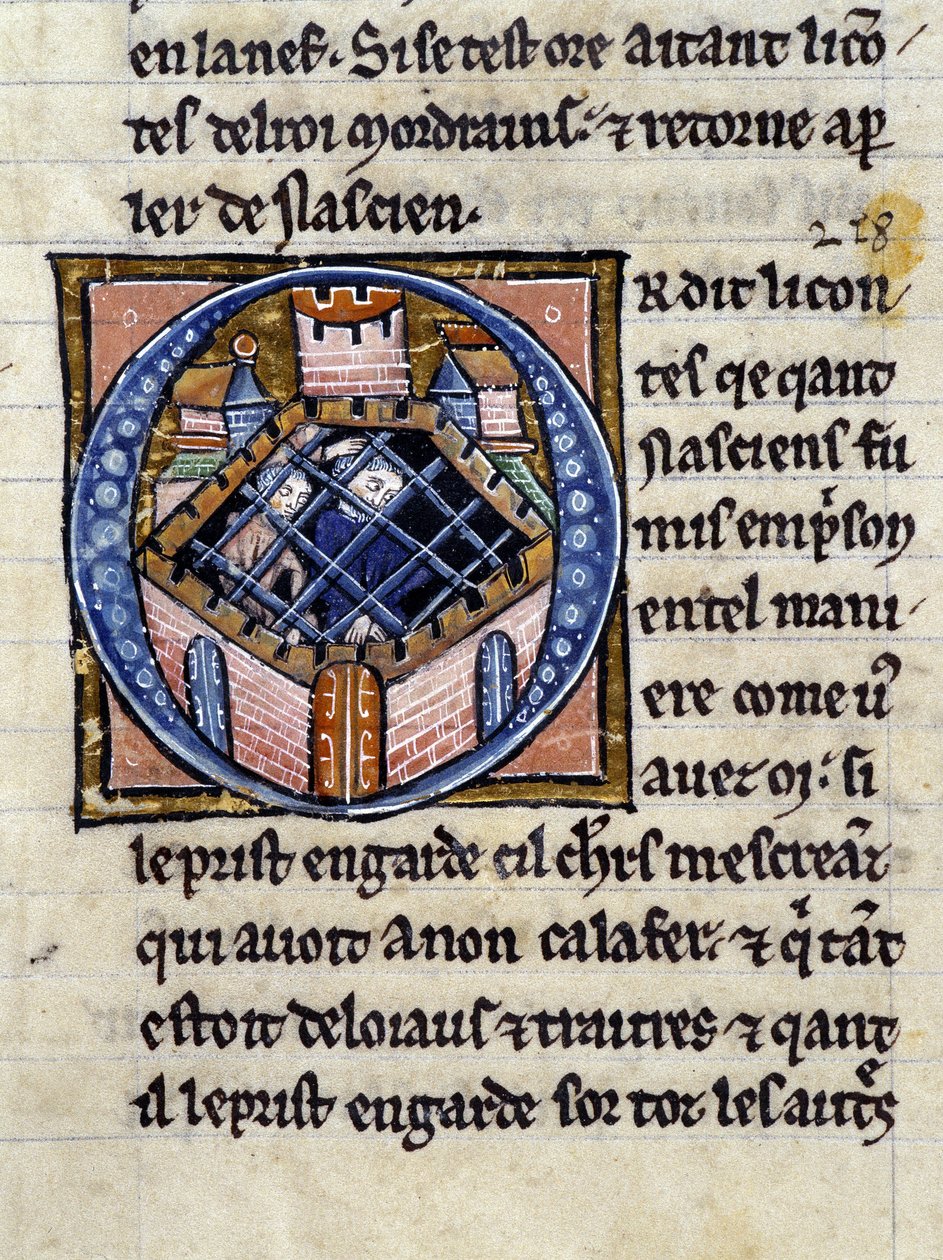 en la nef. Si se test ore aitant li cō
tes del roi mordrains. ⁊ retorne a par
ler de Nascien.
218
OR dit li con
tes qe qant
Nasciens fu
mis em pⁱson
en tel mani
ere come vꝰ
avez oj. si
le prist en garde cil chrs mescreāt
qui avoit a non calafer. ⁊ qⁱ tāt
estoit deloiaus ⁊ traitres ⁊ qant
il le prist en garde sor toz les autͤs